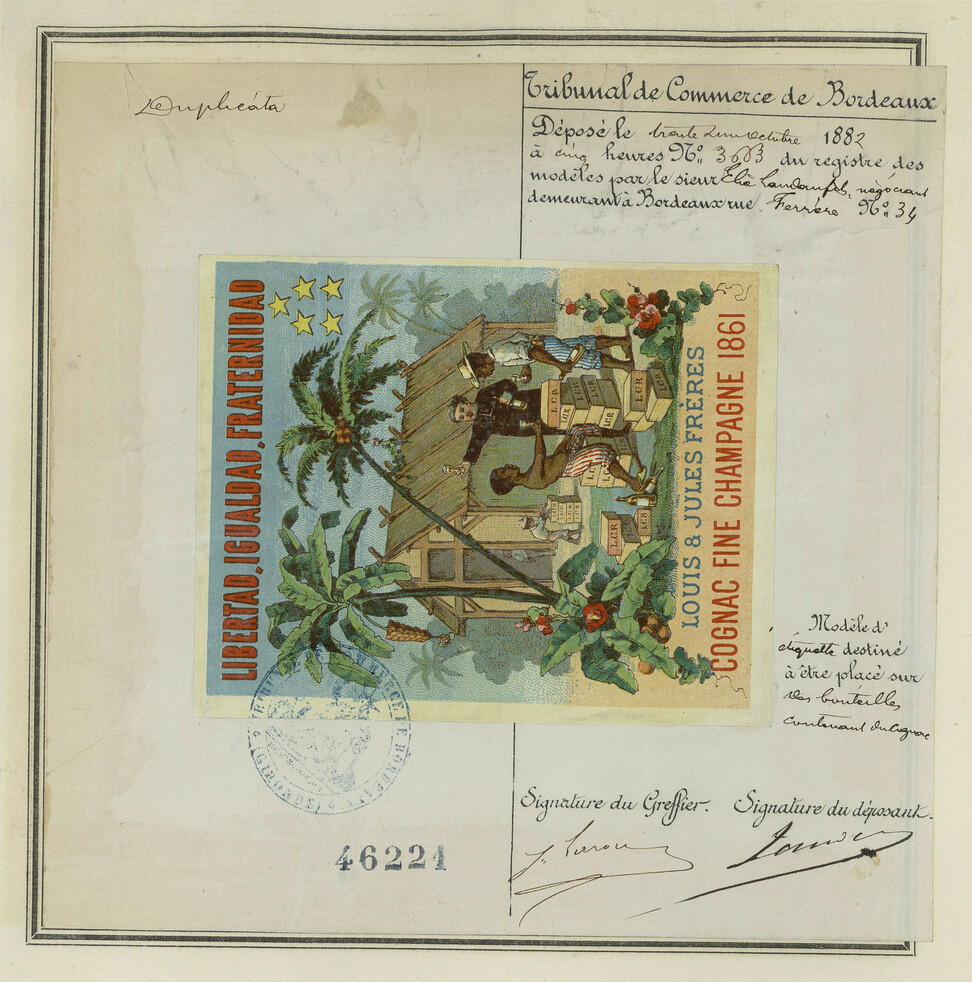 Duplicata
Tribunal de Commerce de Bordeaux
Déposé le trente un octobre 1882
à cinq heures No. 3663 du registre des
modèles par le sieur Elie négociant
demeurant à Bordeaux rue Ferrère No. 34
LIBERTAD, IGUALDAD, FRATERNIDAD
L.C.R
L.C.R
L.C.R
L.C.R
LOUIS & JULES FRÈRES
COGNAC FINE CHAMPAGNE 1861
Modèle d'
étiquette destiné
à être placé sur
des bouteilles
contenant du Cognac
TRIBUNAL DE COMMERCE DE BORDEAUX
(GIRONDE)
Signature du Greffier. Signature du déposant.
46221